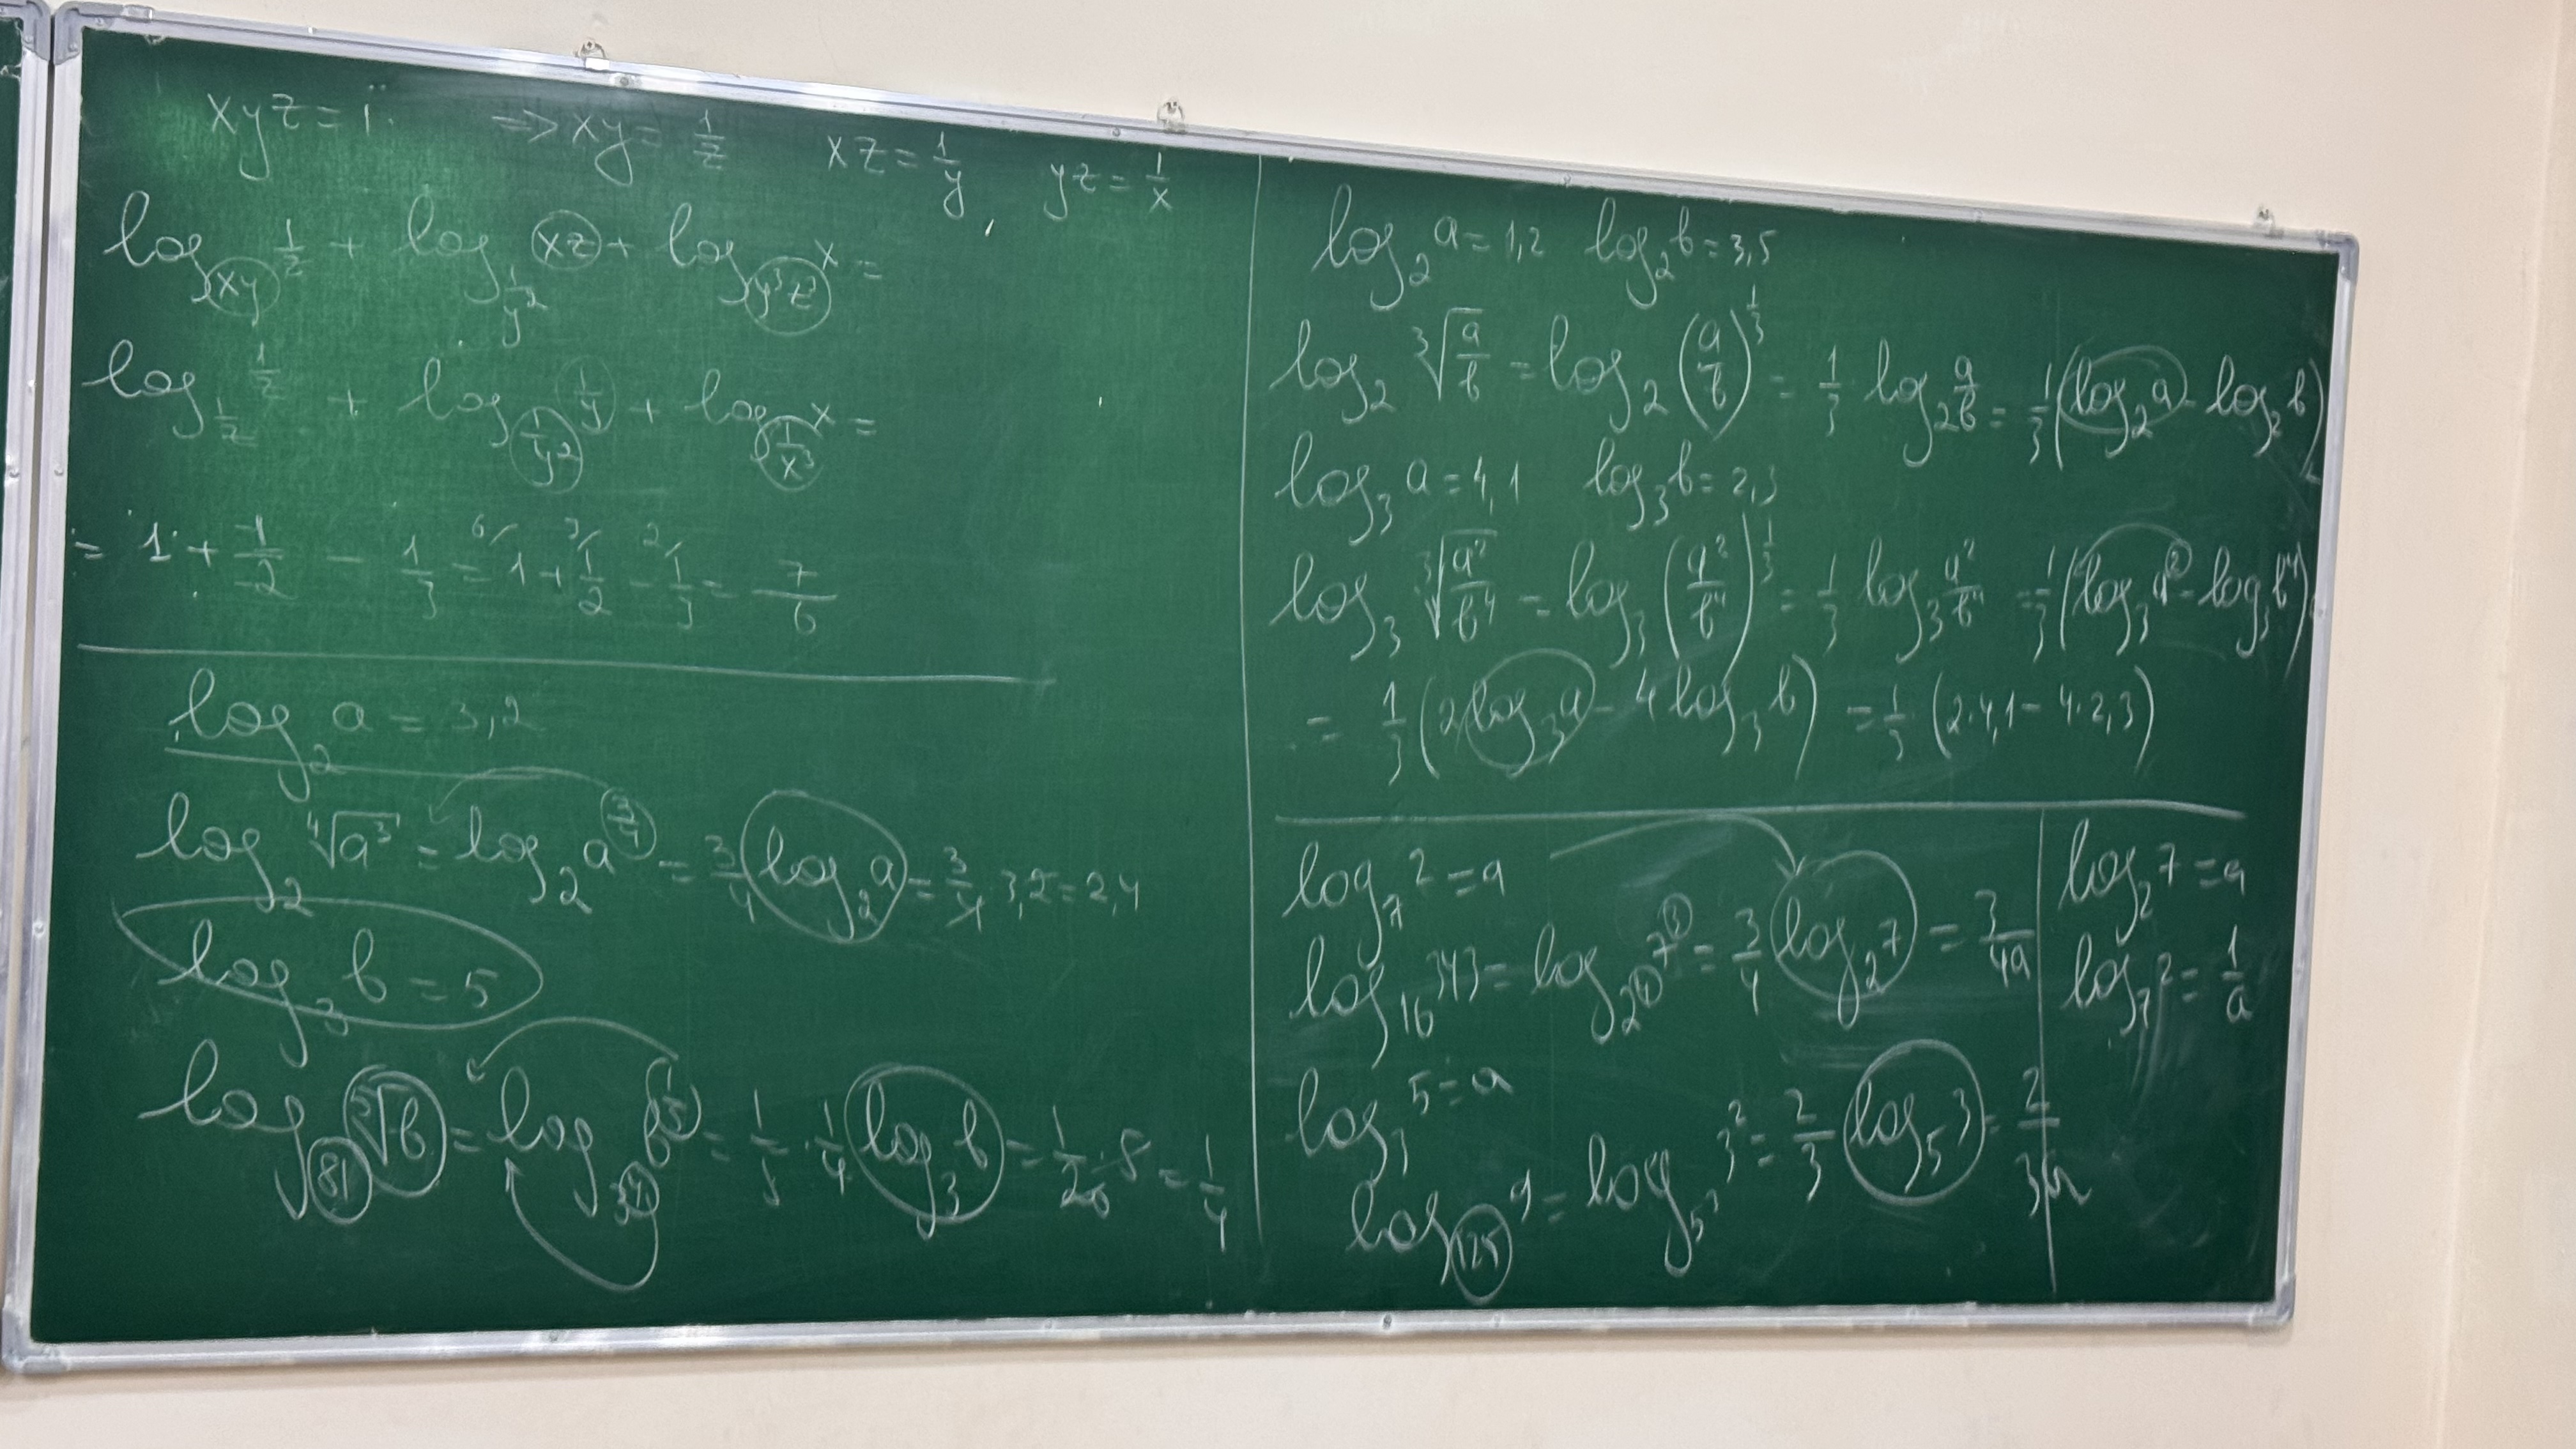 xyz = 1 => xy = 1/z xz = 1/y yz = 1/x
log_{xy} 1/z + log_{1/y²} xz + log_{y³z³} x =
log_{1/z} 1/z + log_{1/y²} 1/y + log_{1/x³} x =
= 1 + 1/2 - 1/3 = 6/ 1 + 3/ 1/2 - 2/ 1/3 = 7/6
log₂ a = 3,2
log₂ ⁴√a³ = log₂ a^{3/4} = 3/4 log₂ a = 3/4 · 3,2 = 2,4
log₃ b = 5
log_{81} ⁵√b = log_{3⁴} b^{1/5} = 1/5 · 1/4 log₃ b = 1/20 · 5 = 1/4
log₂ a = 1,2 log₂ b = 3,5
log₂ ³√(a/b) = log₂ (a/b)^{1/3} = 1/3 · log₂ a/b = 1/3 (log₂ a - log₂ b)
log₃ a = 4,1 log₃ b = 2,3
log₃ ³√(a²/b⁴) = log₃ (a²/b⁴)^{1/3} = 1/3 log₃ a²/b⁴ = 1/3 (log₃ a² - log₃ b⁴)
= 1/3 (2 log₃ a - 4 log₃ b) = 1/3 · (2·4,1 - 4·2,3)
log₇ 2 = a
log₁₆ 343 = log_{2⁴} 7³ = 3/4 log₂ 7 = 3/4a
log₃ 5 = a
log₁₂₅ 9 = log_{5³} 3² = 2/3 log₅ 3 = 2/3a
log₂ 7 = a
log₇ 2 = 1/a